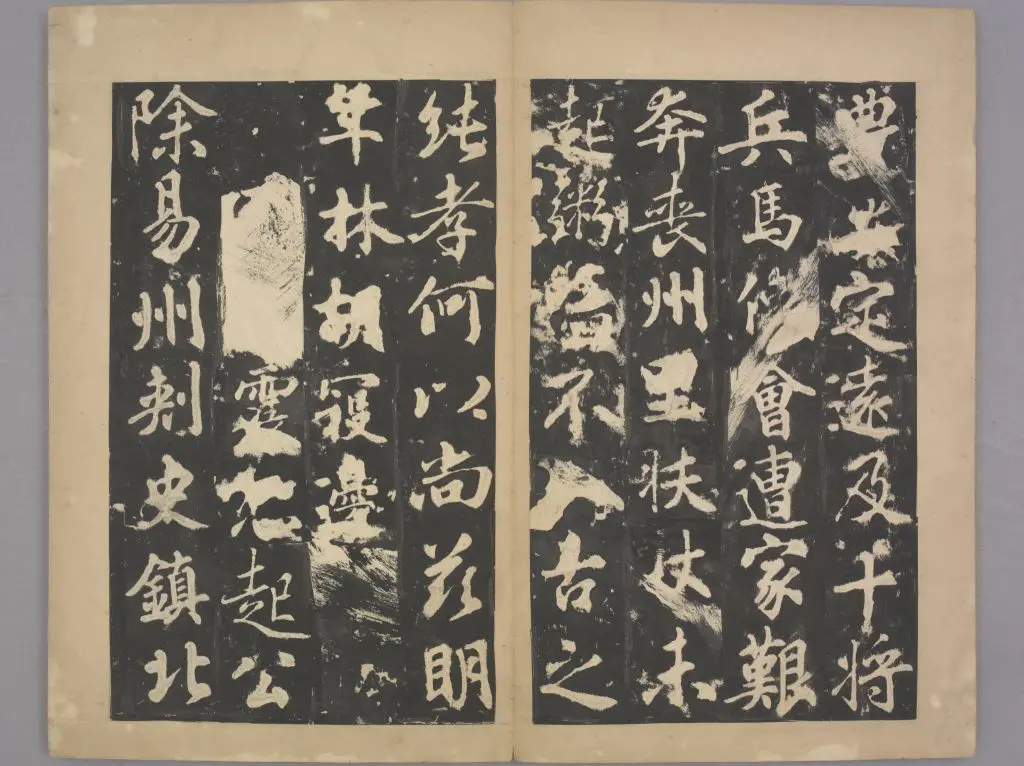 典定遠及十将
兵馬使會遭家艱
奔丧州里扶杖未
起粥溢不古之
純孝何以尚茲明
年林胡寇邊
起公
除易州刺史鎮北